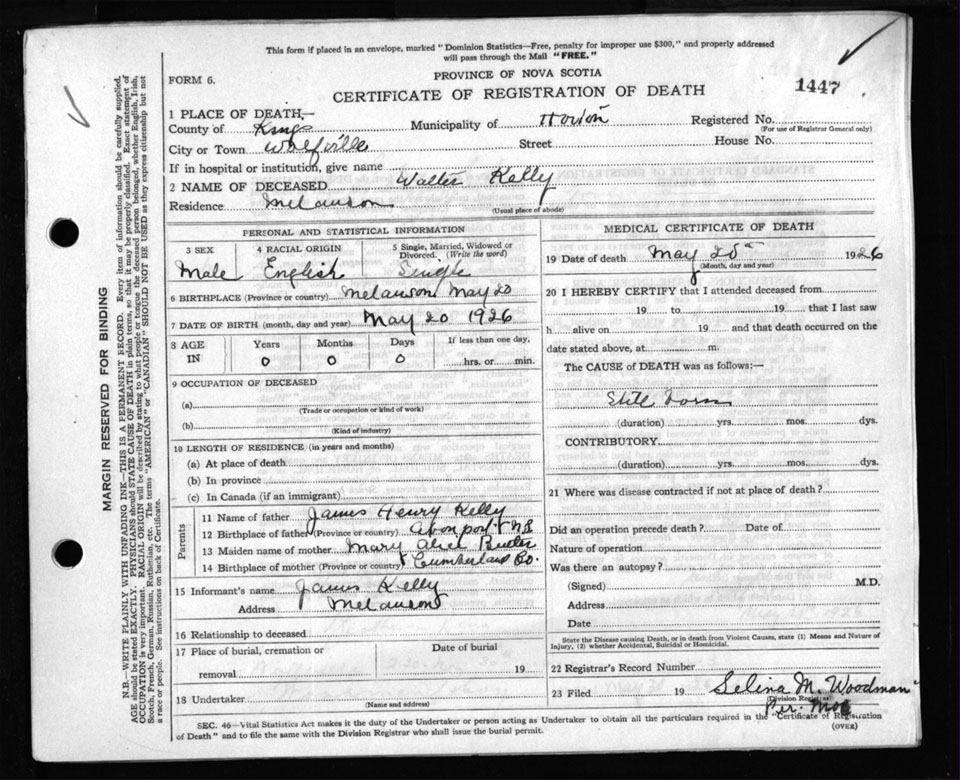 This form if placed in an envelope, marked "Dominion Statistics—Free, penalty for improper use $300," and properly addressed
will pass through the Mail "FREE."
FORM 6.
PROVINCE OF NOVA SCOTIA
1447
CERTIFICATE OF REGISTRATION OF DEATH
1 PLACE OF DEATH,—
County of Kings Municipality of Horton Registered No.
(For use of Registrar General only)
City or Town Wolfville Street House No.
If in hospital or institution, give name
2 NAME OF DECEASED Walter Kelly
Residence Melanson
(Usual place of abode)
PERSONAL AND STATISTICAL INFORMATION
3 SEX 4 RACIAL ORIGIN 5 Single, Married, Widowed or Divorced. (Write the word)
Male English Single
6 BIRTHPLACE (Province or country) Melanson May 20
7 DATE OF BIRTH (month, day and year) May 20 1926
8 AGE IN Years Months Days If less than one day,
0 0 0 hrs. or min.
9 OCCUPATION OF DECEASED
(a)
(Trade or occupation or kind of work)
(b)
(Kind of industry)
10 LENGTH OF RESIDENCE (in years and months)
(a) At place of death
(b) In province
(c) In Canada (if an immigrant)
Parents
11 Name of father James Henry Kelly
12 Birthplace of father (Province or country) Avonport N.S
13 Maiden name of mother Mary Alice
14 Birthplace of mother (Province or country) Cumberland Co.
15 Informant's name James Kelly
Address Melanson
16 Relationship to deceased
17 Place of burial, cremation or removal Date of burial
19
18 Undertaker
(Name and address)
MEDICAL CERTIFICATE OF DEATH
19 Date of death May 20 1926
(Month, day and year)
20 I HEREBY CERTIFY that I attended deceased from
19 to 19 that I last saw
h alive on 19 and that death occurred on the
date stated above, at m.
The CAUSE of DEATH was as follows:—
Still born
(duration) yrs. mos. dys.
CONTRIBUTORY
(duration) yrs. mos. dys.
21 Where was disease contracted if not at place of death?
Did an operation precede death? Date of
Nature of operation
Was there an autopsy?
(Signed) M.D.
Address
Date
State the Disease causing Death, or in death from Violent Causes, state (1) Means and Nature of
Injury, (2) whether Accidental, Suicidal or Homicidal.
22 Registrar's Record Number
23 Filed 19 Selina M. Woodman
Division Registrar
Per.
SEC. 46—Vital Statistics Act makes it the duty of the Undertaker or person acting as Undertaker to obtain all the particulars required in the "Certificate of Registration
of Death" and to file the same with the Division Registrar who shall issue the burial permit.
(OVER)
MARGIN RESERVED FOR BINDING
N.B.—WRITE PLAINLY WITH UNFADING INK—THIS IS A PERMANENT RECORD. Every item of information should be carefully supplied.
AGE should be stated EXACTLY. PHYSICIANS should STATE CAUSE OF DEATH in plain terms, so that it may be properly classified. Exact statement of
OCCUPATION is very important. RACIAL ORIGIN will be described by stating to what people or tongue the deceased person belonged, whether English, Irish,
Scotch, French, German, Russian, Ruthenian, etc. The terms "AMERICAN" or "CANADIAN" SHOULD NOT BE USED as they express citizenship but not
a race or people. See instructions on back of Certificate.